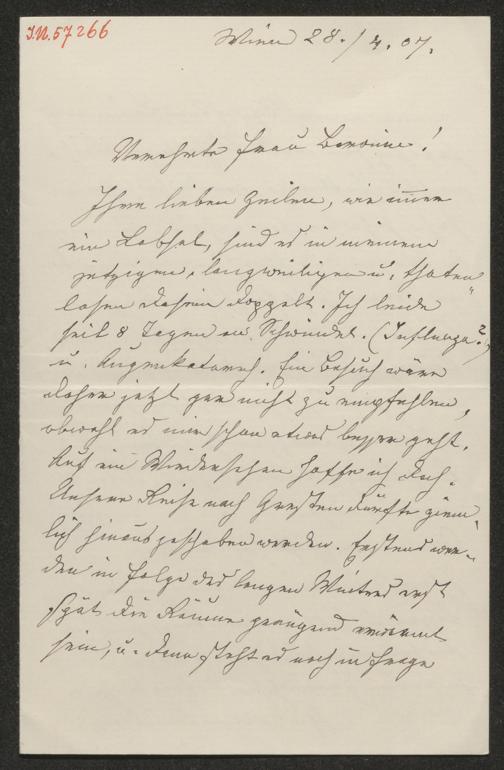 I.N. 57266
Wien 28./4. 07.
Verehrte Frau Baronin!
Ihre lieben Zeilen, wie immer
ein Labsal, sind es in meinem
jetzigen, langweiligen u. thaten-
losen Dasein doppelt. Ich leide
seit 8 Tagen an Schwindel. (Influenza?)
u. Augenkatarrh. Ein Besuch wäre
daher jetzt gar nicht zu empfehlen,
obwohl es mir schon etwas besser geht.
Auf ein Wiedersehen hoffe ich doch.
Unsere Reise nach Gresten dürfte ziem-
lich hinausgeschoben werden. Erstens wer-
den in Folge des langen Winters erst
spät die Räume genügend erwärmt
sein, u. dann steht es noch in Frage